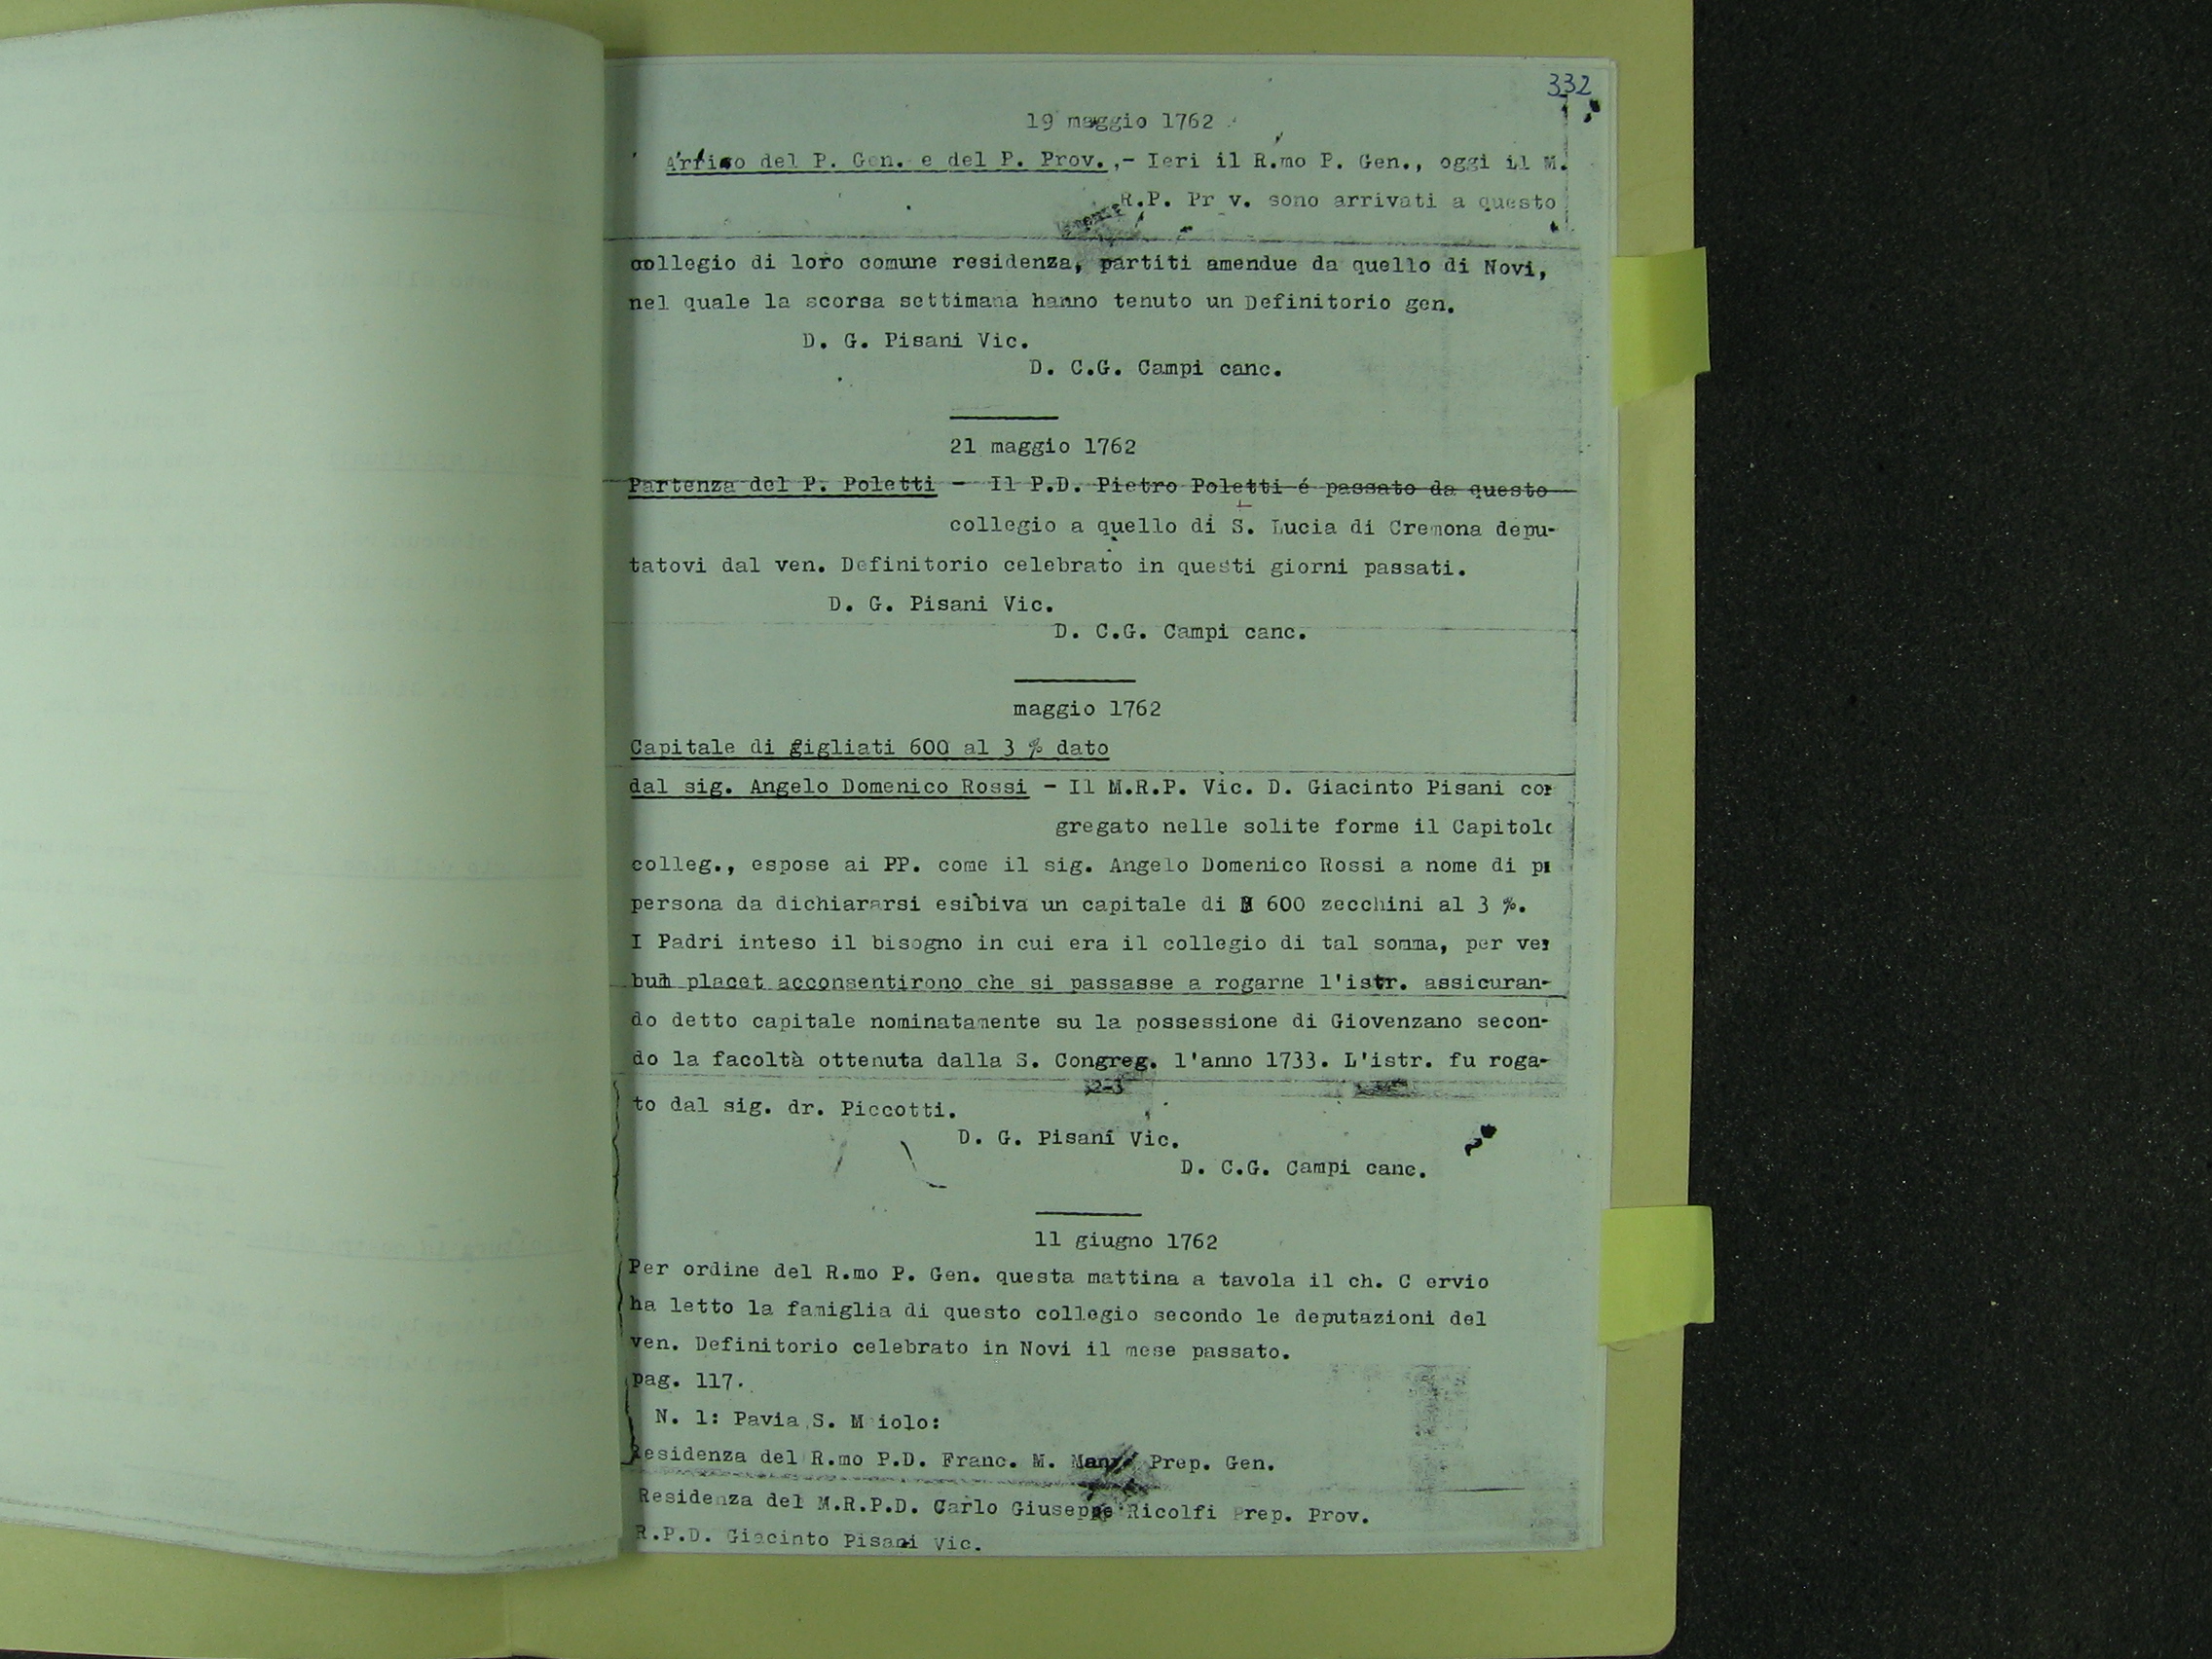 332
19 maggio 1762
Arrivo del P. Gen. e del P. Prov.,- Ieri il R.mo P. Gen., oggi il M.
R.P. Pr v. sono arrivati a questo
collegio di loro comune residenza, partiti amendue da quello di Novi,
nel quale la scorsa settimana hanno tenuto un Definitorio gen.
D. G. Pisani Vic.
D. C.G. Campi canc.
21 maggio 1762
Partenza del P. Poletti - Il P.D. Pietro Poletti é passato da questo
collegio a quello di S. Lucia di Cremona depu-
tatovi dal ven. Definitorio celebrato in questi giorni passati.
D. G. Pisani Vic.
D. C.G. Campi canc.
maggio 1762
Capitale di gigliati 600 al 3 % dato
dal sig. Angelo Domenico Rossi - Il M.R.P. Vic. D. Giacinto Pisani con
gregato nelle solite forme il Capitolo
colleg., espose ai PP. come il sig. Angelo Domenico Rossi a nome di
persona da dichiararsi esibiva un capitale di 600 zecchini al 3 %.
I Padri inteso il bisogno in cui era il collegio di tal somma, per ver
bum placet acconsentirono che si passasse a rogarne l'istr. assicuran-
do detto capitale nominatamente su la possessione di Giovenzano secon-
do la facoltà ottenuta dalla S. Congreg. l'anno 1733. L'istr. fu roga-
to dal sig. dr. Piccotti.
D. G. Pisani Vic.
D. C.G. Campi canc.
11 giugno 1762
Per ordine del R.mo P. Gen. questa mattina a tavola il ch. C ervio
ha letto la famiglia di questo collegio secondo le deputazioni del
ven. Definitorio celebrato in Novi il mese passato.
pag. 117.
N. 1: Pavia S. Maiolo:
Residenza del R.mo P.D. Franc. M. Prep. Gen.
Residenza del M.R.P.D. Carlo Giuseppe Ricolfi Prep. Prov.
R.P.D. Giacinto Pisani Vic.